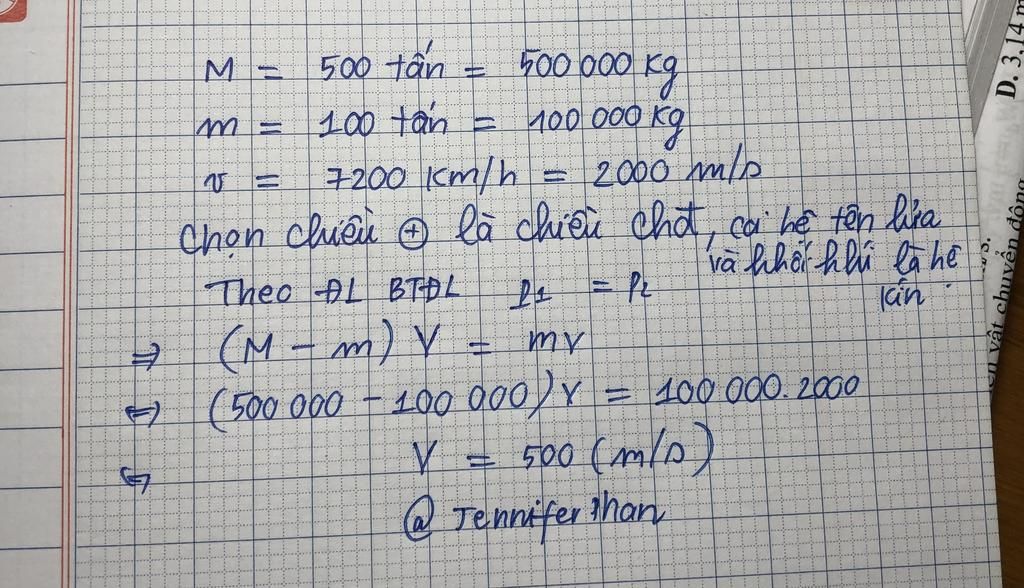 M = 500 tấn = 500 000 kg
m = 100 tấn = 100 000 kg
v = 7200 km/h = 2000 m/s
Chọn chiều ⊕ là chiều chđ, coi hệ tên lửa
và khối khí là hệ
kín.
Theo ĐL BTĐL P1 = P2
⇒ (M - m) V = mv
⇔ (500 000 - 100 000)V = 100 000.2000
⇔ V = 500 (m/s)
@ Jennifer
D. 3,14 m
/s.
vật chuyển động